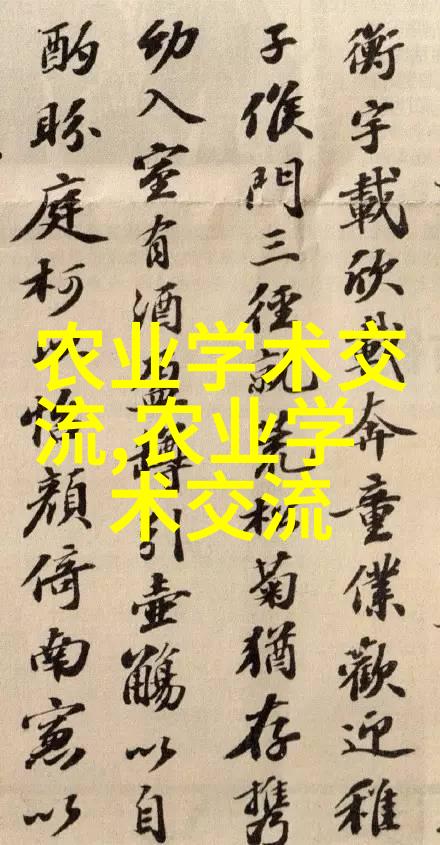 衡宇載欣載奔童僕歡迎稚
子候門三徑就荒松菊猶存携
幼入室有酒盈樽引壺觴以自
酌眄庭柯以怡顏倚南窻以
农业学术交
流,农业学
术交流